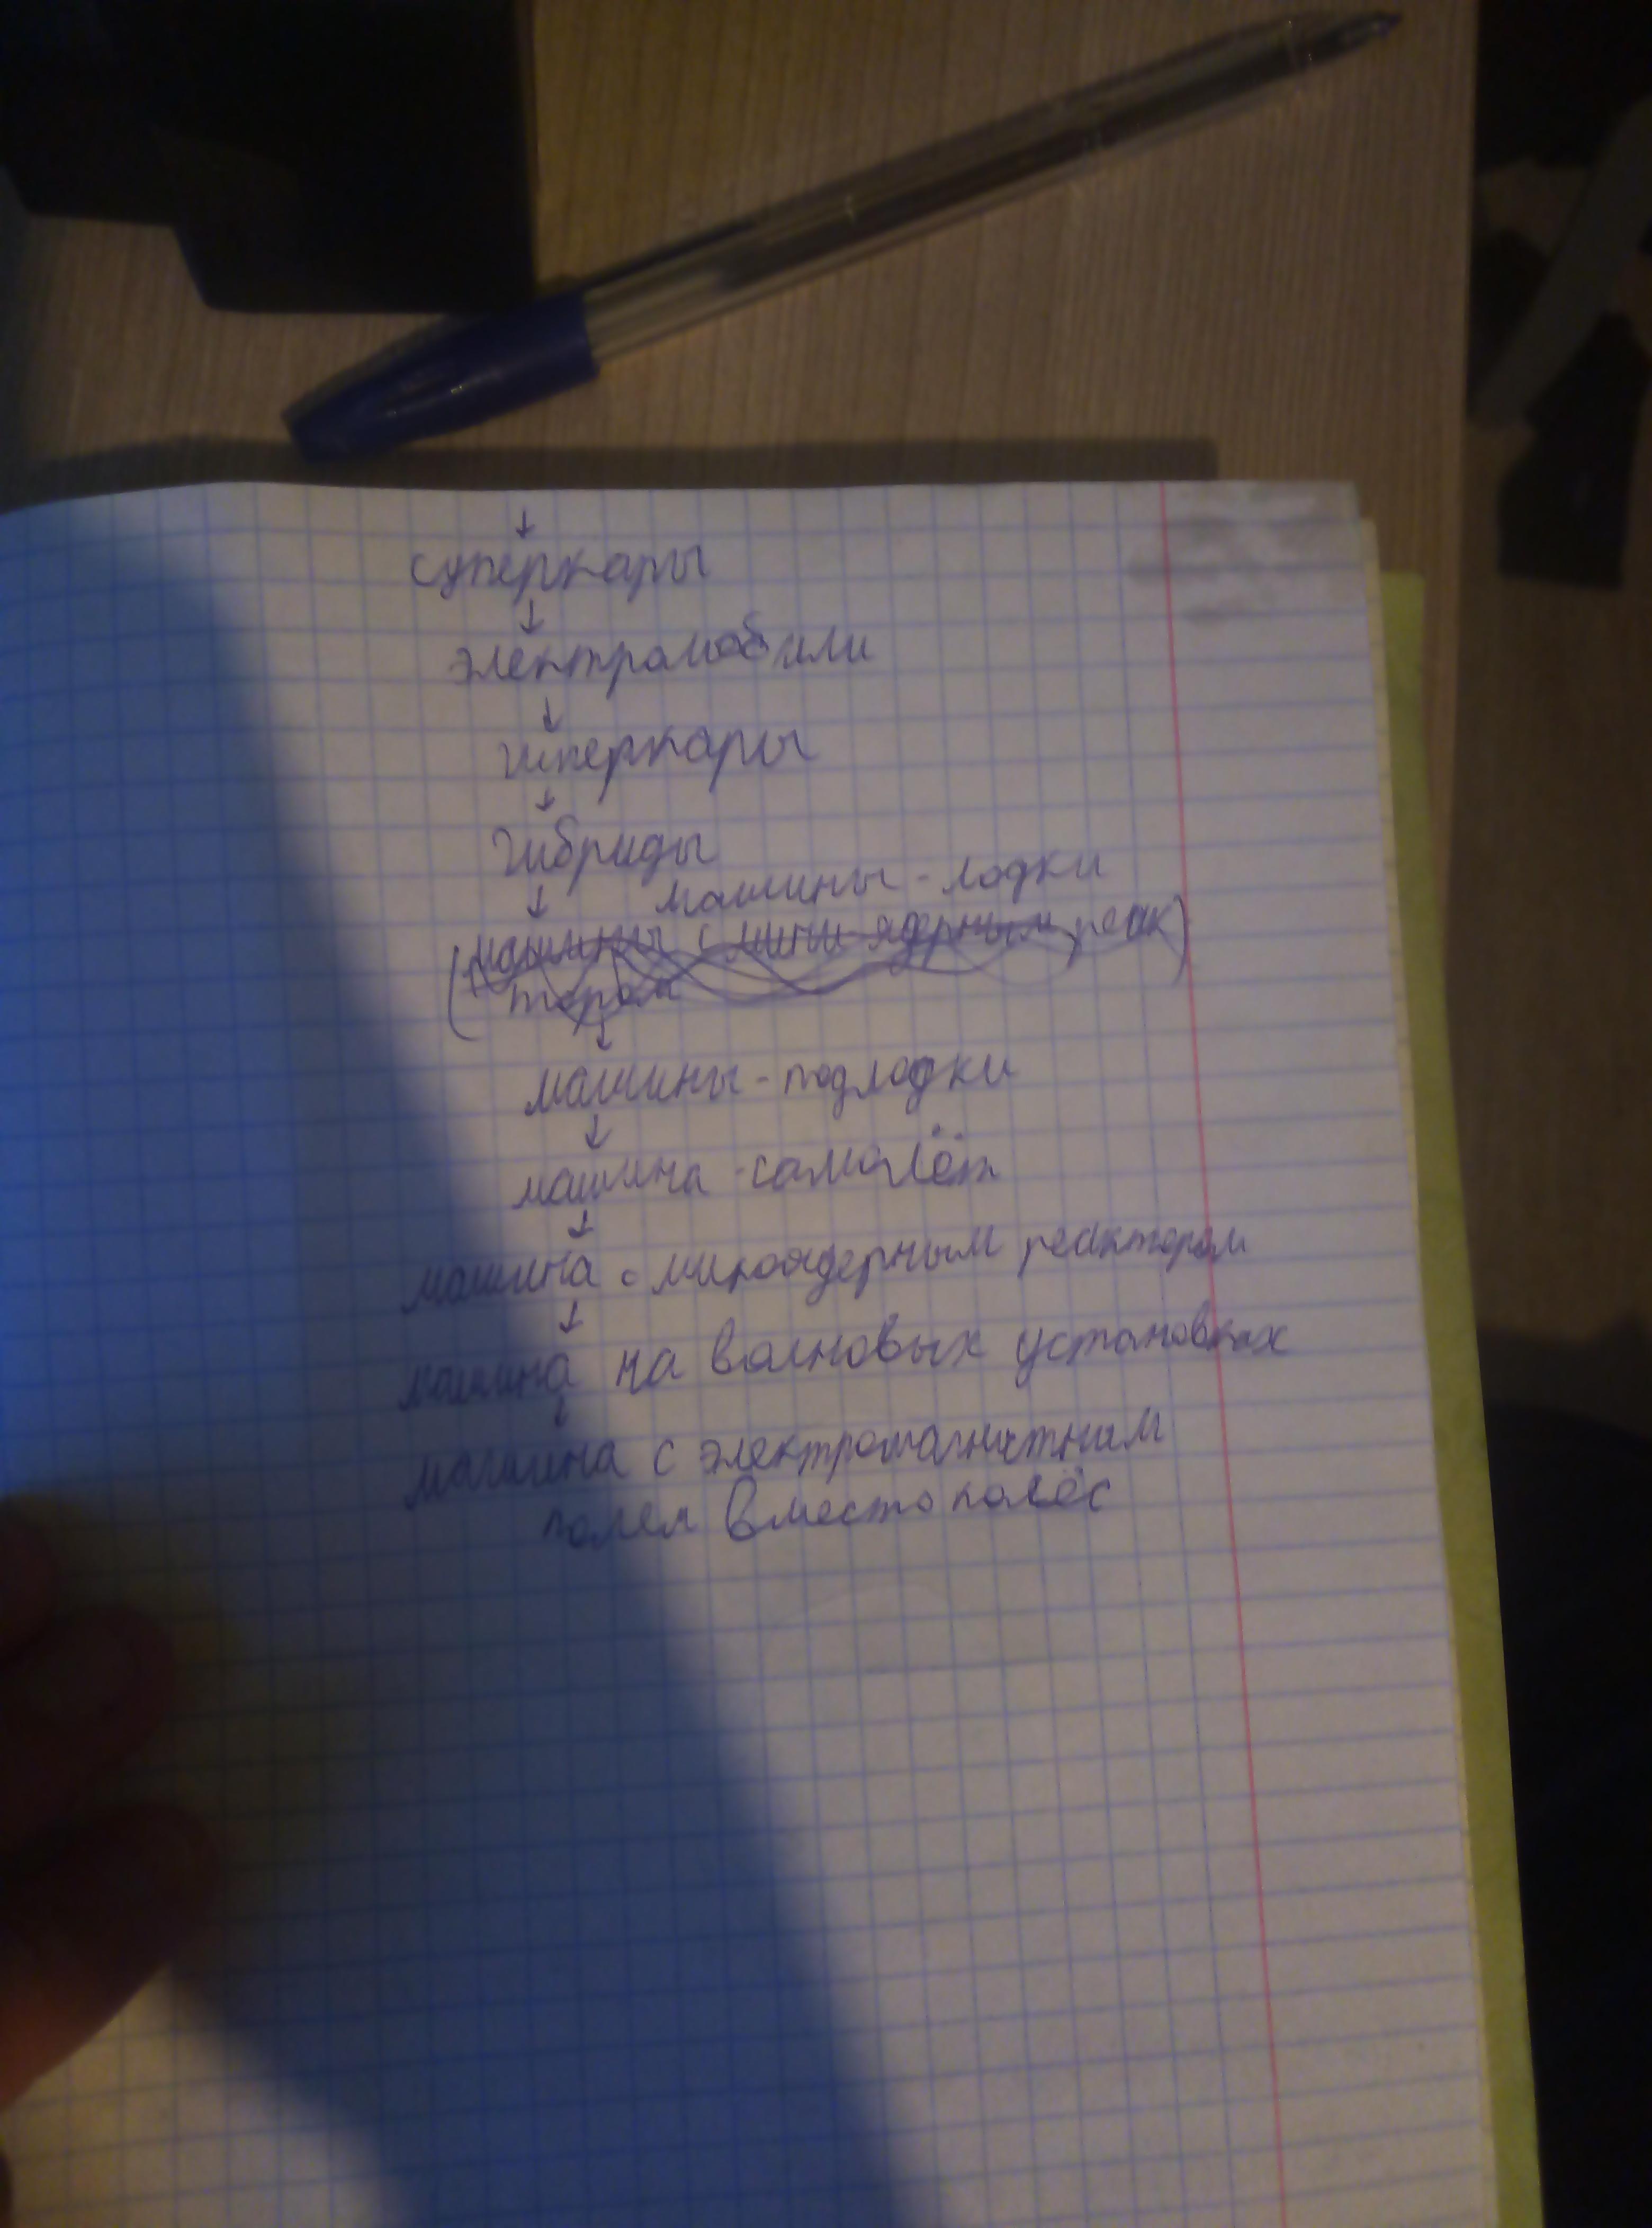 ↓
суперкары
↓
электромобили
↓
гиперкары
↓
гибриды
↓ машины-лодки
(машины с мини ядерным реак)
тором
↓
машины-подлодки
↓
машина-самолёт
↓
машина с микроядерным реактором
↓
машина на волновых установках
↓
машина с электромагнитным
полем вместо колёс